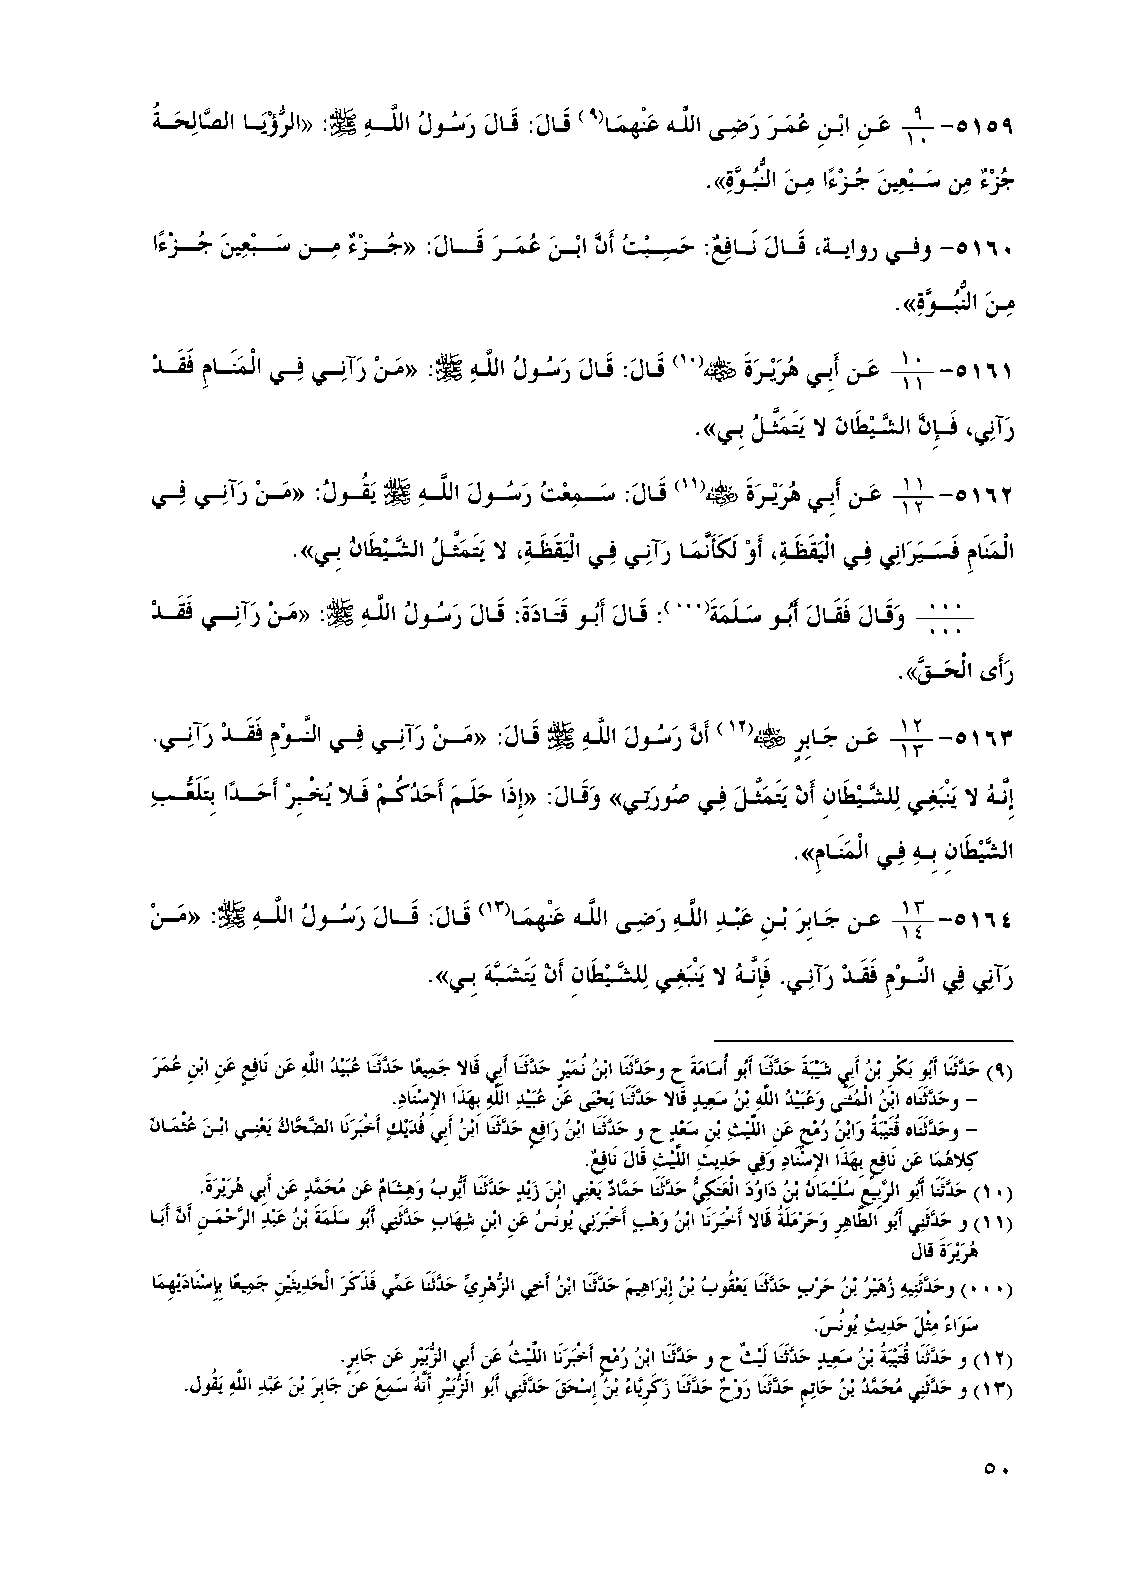 ٥١٥٩- ٩/١٠ عَنِ ابْنِ عُمَرَ رَضِى اللَّه عَنْهمَا(٩) قَالَ: قَالَ رَسُولُ اللَّهِ ﷺ: «الرُّؤْيَا الصَّالِحَةُ
جُزْءٌ مِن سَبْعِينَ جُزْءًا مِنَ النُّبُوَّةِ».
٥١٦٠- وفي رواية، قَالَ نَافِعٌ: حَسِبْتُ أَنَّ ابْنَ عُمَرَ قَالَ: «جُزْءٌ مِن سَبْعِينَ جُزْءًا
مِنَ النُّبُوَّةِ».
٥١٦١- ١٠/١١ عَن أَبِي هُرَيْرَةَ ﷺ(١٠) قَالَ: قَالَ رَسُولُ اللَّهِ ﷺ: «مَنْ رَآنِي فِي الْمَنَامِ فَقَدْ
رَآنِي، فَإِنَّ الشَّيْطَانَ لا يَتَمَثَّلُ بِي».
٥١٦٢- ١١/١٢ عَن أَبِي هُرَيْرَةَ ﷺ(١١) قَالَ: سَمِعْتُ رَسُولَ اللَّهِ ﷺ يَقُولُ: «مَنْ رَآنِي فِي
الْمَنَامِ فَسَيَرَانِي فِي الْيَقَظَةِ، أَوْ لَكَأَنَّمَا رَآنِي فِي الْيَقَظَةِ، لا يَتَمَثَّلُ الشَّيْطَانُ بِي».
٠٠٠/٠٠٠ وَقَالَ فَقَالَ أَبُو سَلَمَةَ(٠٠٠): قَالَ أَبُو قَتَادَةَ: قَالَ رَسُولُ اللَّهِ ﷺ: «مَنْ رَآنِي فَقَدْ
رَأَى الْحَقَّ».
٥١٦٣- ١٢/١٣ عَن جَابِرٍ ﷺ(١٢) أَنَّ رَسُولَ اللَّهِ ﷺ قَالَ: «مَنْ رَآنِي فِي النَّوْمِ فَقَدْ رَآنِي.
إِنَّهُ لا يَنْبَغِي لِلشَّيْطَانِ أَنْ يَتَمَثَّلَ فِي صُورَتِي» وَقَالَ: «إِذَا حَلَمَ أَحَدُكُمْ فَلا يُخْبِرْ أَحَدًا بِتَلَعُّبِ
الشَّيْطَانِ بِهِ فِي الْمَنَامِ».
٥١٦٤- ١٣/١٤ عن جَابِرَ بْنِ عَبْدِ اللَّهِ رَضِى اللَّه عَنْهمَا(١٣) قَالَ: قَالَ رَسُولُ اللَّهِ ﷺ: «مَنْ
رَآنِي فِي النَّوْمِ فَقَدْ رَآنِي. فَإِنَّهُ لا يَنْبَغِي لِلشَّيْطَانِ أَنْ يَتَشَبَّهَ بِي».
(٩) حَدَّثَنَا أَبُو بَكْرِ بْنُ أَبِي شَيْبَةَ حَدَّثَنَا أَبُو أُسَامَةَ ح وحَدَّثَنَا ابْنُ نُمَيْرٍ حَدَّثَنَا أَبِي قَالا جَمِيعًا حَدَّثَنَا عُبَيْدُ اللَّهِ عَن نَافِعٍ عَنِ ابْنِ عُمَرَ
- وحَدَّثَنَاه ابْنُ الْمُثَنَّى وَعُبَيْدُ اللَّهِ بْنُ سَعِيدٍ قَالا حَدَّثَنَا يَحْيَى عَنْ عُبَيْدِ اللَّهِ بِهَذَا الإِسْنَادِ.
- وحَدَّثَنَاه قُتَيْبَةُ وَابْنُ رُمْحٍ عَنِ اللَّيْثِ بْنِ سَعْدٍ ح و حَدَّثَنَا ابْنُ رَافِعٍ حَدَّثَنَا ابْنُ أَبِي فُدَيْكٍ أَخْبَرَنَا الضَّحَّاكُ يَعْنِي ابْنَ عُثْمَانَ
كِلاهُمَا عَن نَافِعٍ بِهَذَا الإِسْنَادِ وَفِي حَدِيثِ اللَّيْثِ قَالَ نَافِعٌ.
(١٠) حَدَّثَنَا أَبُو الرَّبِيعِ سُلَيْمَانُ بْنُ دَاوُدَ الْعَتَكِيُّ حَدَّثَنَا حَمَّادٌ يَعْنِي ابْنَ زَيْدٍ حَدَّثَنَا أَيُّوبُ وَهِشَامٌ عَن مُحَمَّدٍ عَن أَبِي هُرَيْرَةَ.
(١١) و حَدَّثَنِي أَبُو الطَّاهِرِ وَحَرْمَلَةُ قَالا أَخْبَرَنَا ابْنُ وَهْبٍ أَخْبَرَنِي يُونُسُ عَنِ ابْنِ شِهَابٍ حَدَّثَنِي أَبُو سَلَمَةَ بْنُ عَبْدِ الرَّحْمَنِ أَنَّ أَبَا
هُرَيْرَةَ قَالَ
(٠٠٠) وحَدَّثَنِيهِ زُهَيْرُ بْنُ حَرْبٍ حَدَّثَنَا يَعْقُوبُ بْنُ إِبْرَاهِيمَ حَدَّثَنَا ابْنُ أَخِي الزُّهْرِيِّ حَدَّثَنَا عَمِّي فَذَكَرَ الْحَدِيثَيْنِ جَمِيعًا بِإِسْنَادَيْهِمَا
سَوَاءً مِثْلَ حَدِيثِ يُونُسَ.
(١٢) و حَدَّثَنَا قُتَيْبَةُ بْنُ سَعِيدٍ حَدَّثَنَا لَيْثٌ ح و حَدَّثَنَا ابْنُ رُمْحٍ أَخْبَرَنَا اللَّيْثُ عَن أَبِي الزُّبَيْرِ عَن جَابِرٍ.
(١٣) و حَدَّثَنِي مُحَمَّدُ بْنُ حَاتِمٍ حَدَّثَنَا رَوْحٌ حَدَّثَنَا زَكَرِيَّاءُ بْنُ إِسْحَقَ حَدَّثَنِي أَبُو الزُّبَيْرِ أَنَّهُ سَمِعَ عَن جَابِرَ بْنَ عَبْدِ اللَّهِ يَقُولُ.
٥٠